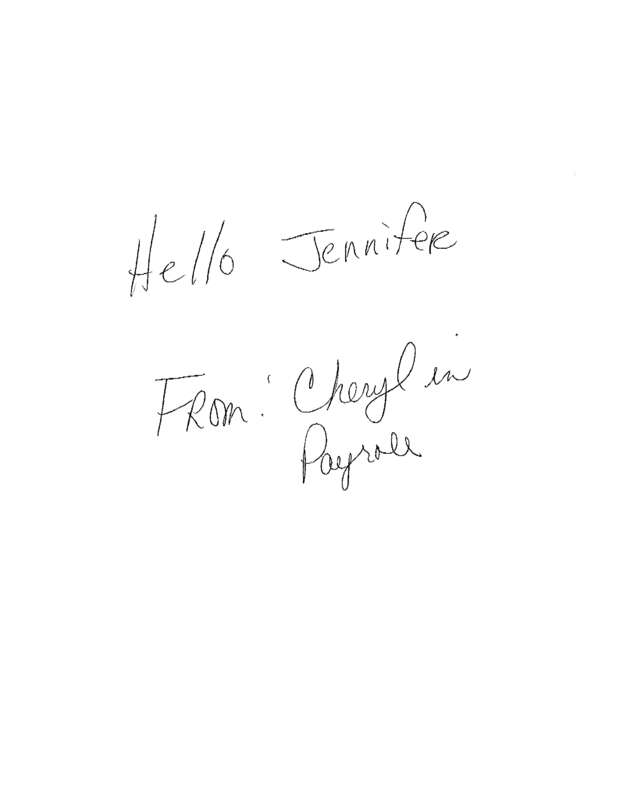 Hello Jennifer
From: Cheryl in
Payroll